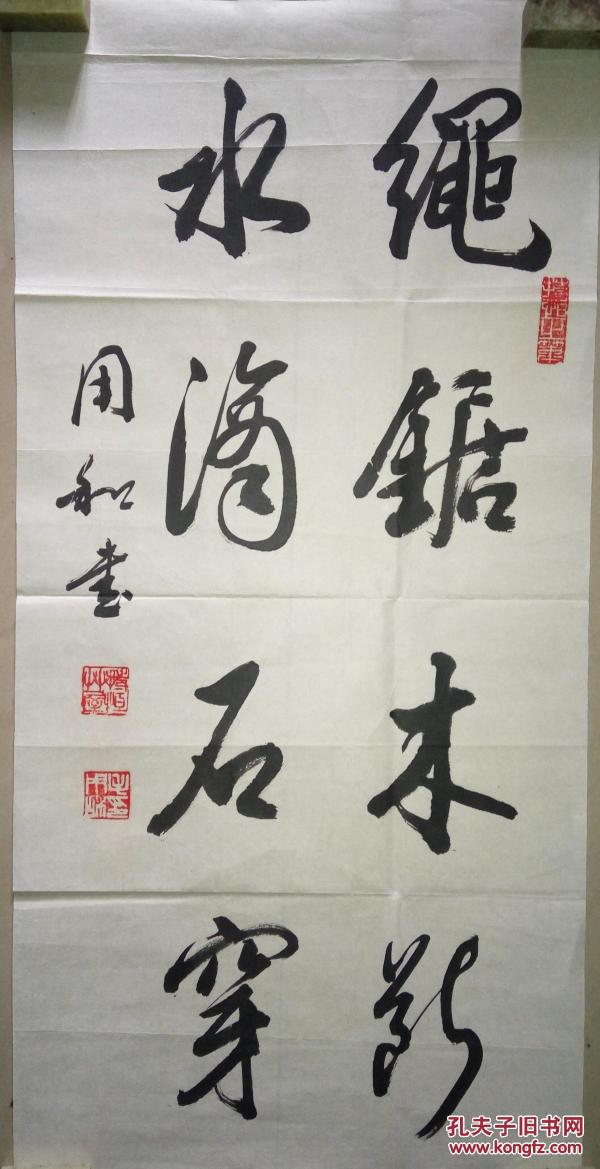 繩鋸木斷
水滴石穿
用和書
孔夫子旧书网
www.kongfz.com